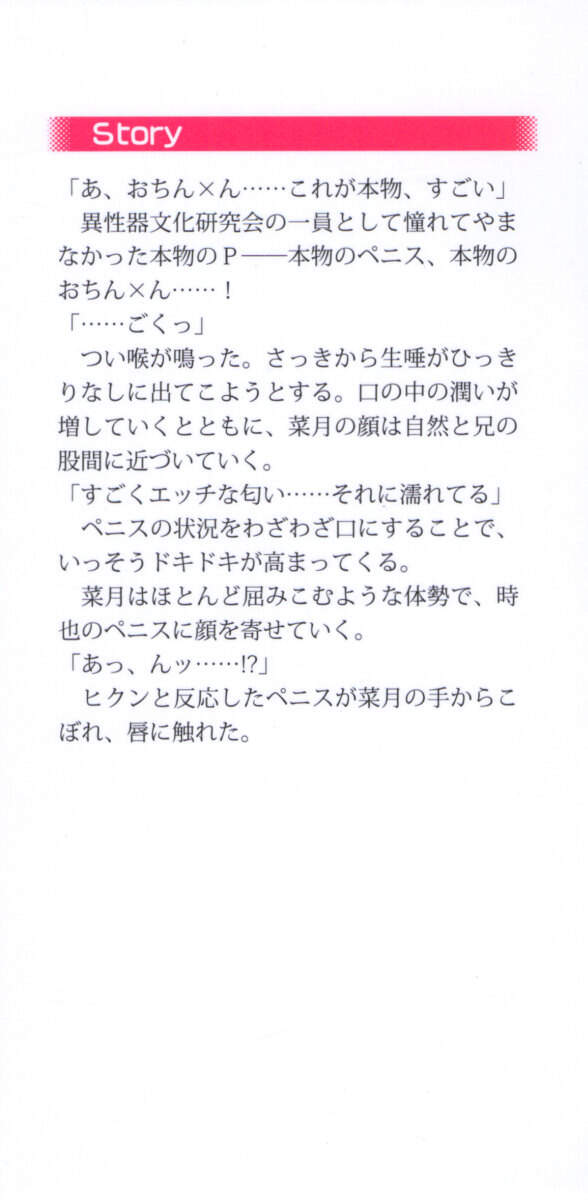 Story
「あ、おちん×ん……これが本物、すごい」
異性器文化研究会の一員として憧れてやま
なかった本物のP――本物のペニス、本物の
おちん×ん……！
「……ごくっ」
つい喉が鳴った。さっきから生唾がひっき
りなしに出てこようとする。口の中の潤いが
増していくとともに、菜月の顔は自然と兄の
股間に近づいていく。
「すごくエッチな匂い……それに濡れてる」
ペニスの状況をわざわざ口にすることで、
いっそうドキドキが高まってくる。
菜月はほとんど屈みこむような体勢で、時
也のペニスに顔を寄せていく。
「あっ、んッ……!?」
ヒクンと反応したペニスが菜月の手からこ
ぼれ、唇に触れた。